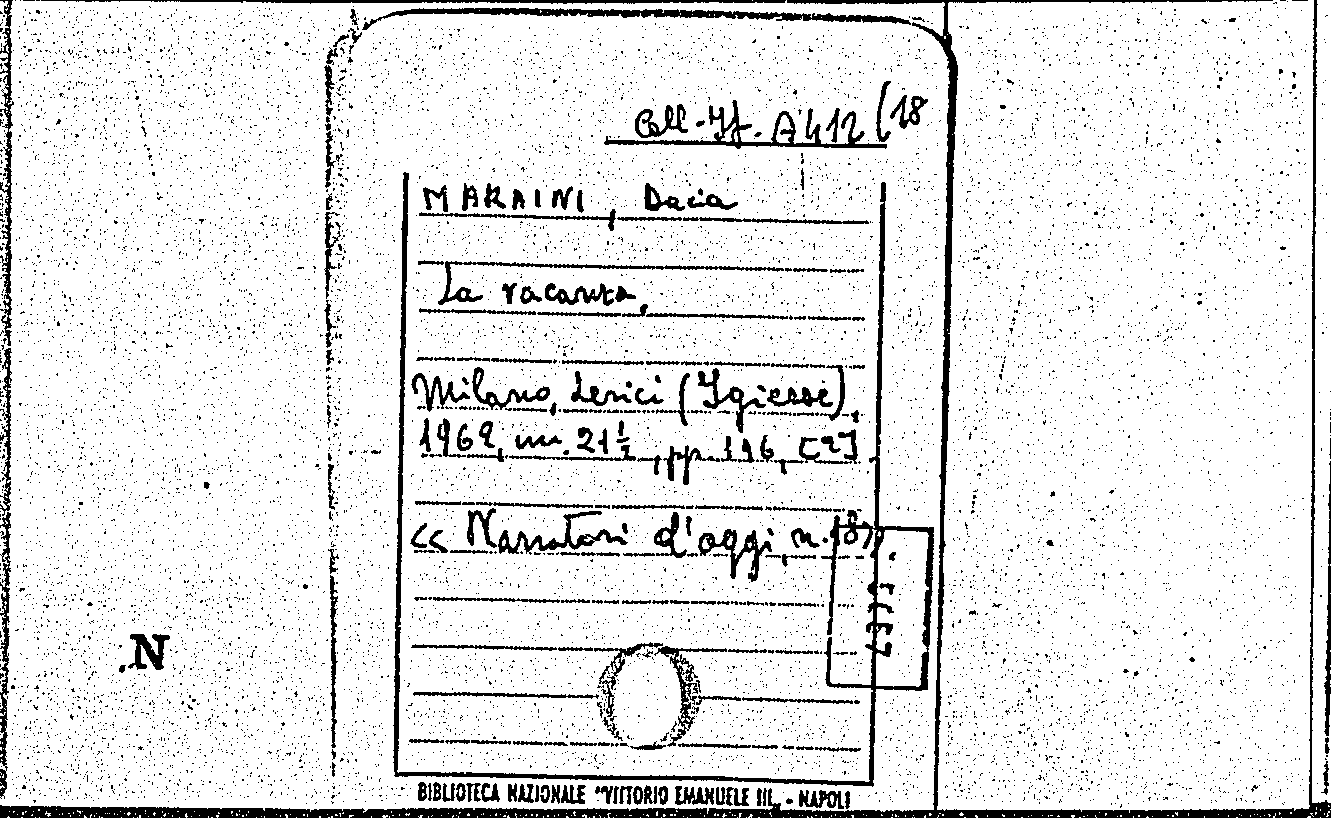 Coll-It. A412 (18
MARAINI, Dacia
La vacanza,
Milano, Lerici (Igiesse),
1962, in. 21½, pp. 196, [2].
<< Narratori d'oggi, n. 18>>.
N
BIBLIOTECA NAZIONALE "VITTORIO EMANUELE III„ - NAPOLI